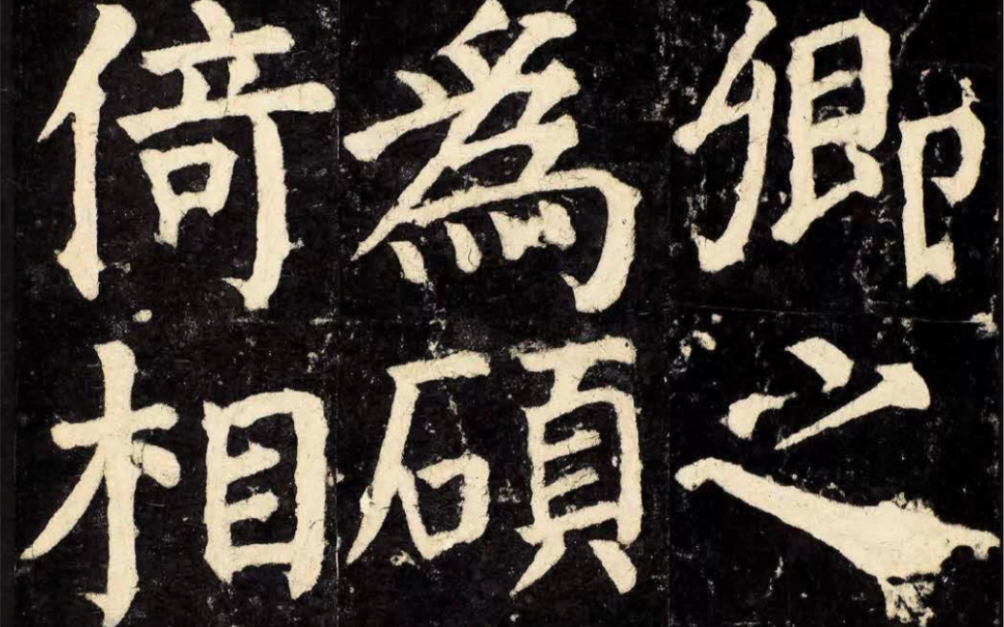 卿之
為碩
倚相